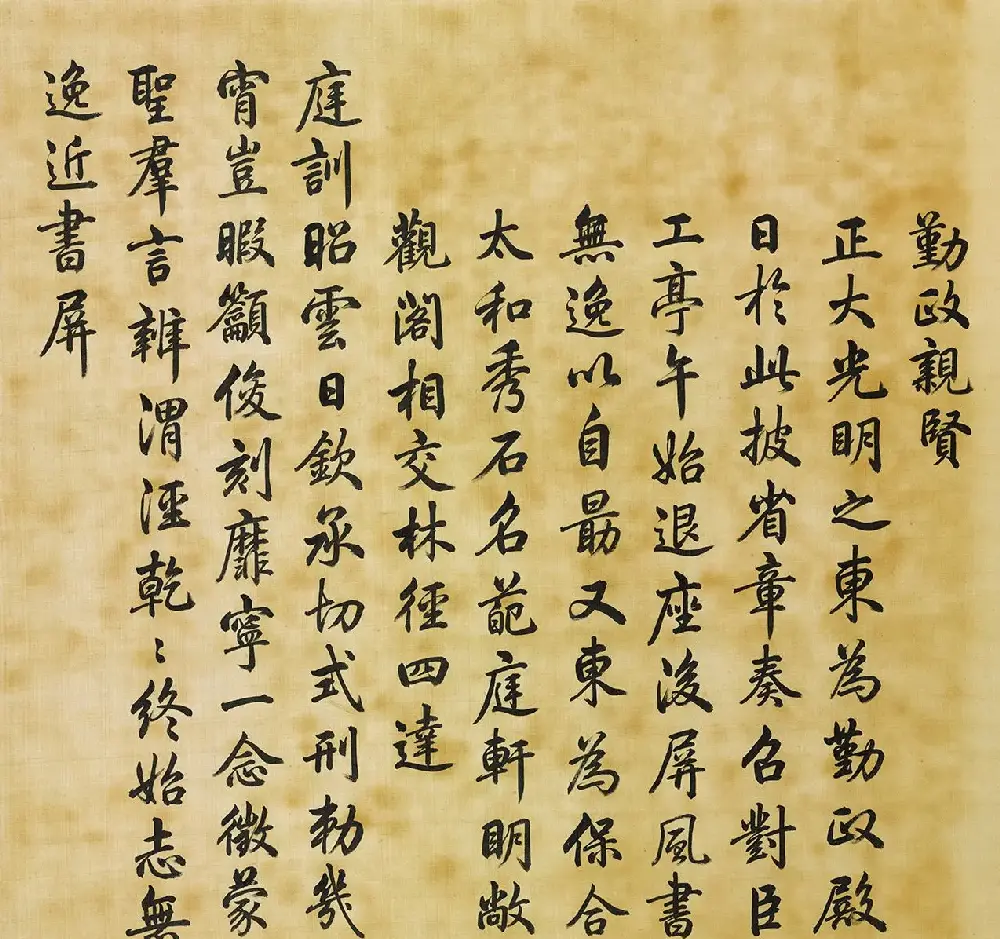 勤政親賢
正大光明之東為勤政殿
日於此披省章奏召對臣
工亭午始退座後屏風書
無逸以自勗又東為保合
太和秀石名葩庭軒明敞
觀閣相交林徑四達
庭訓昭雲日欽承切式刑勑幾
宵豈暇籲俊刻靡寧一念徵蒙
聖羣言雜渭涇乾〻終始志無
逸近書屏